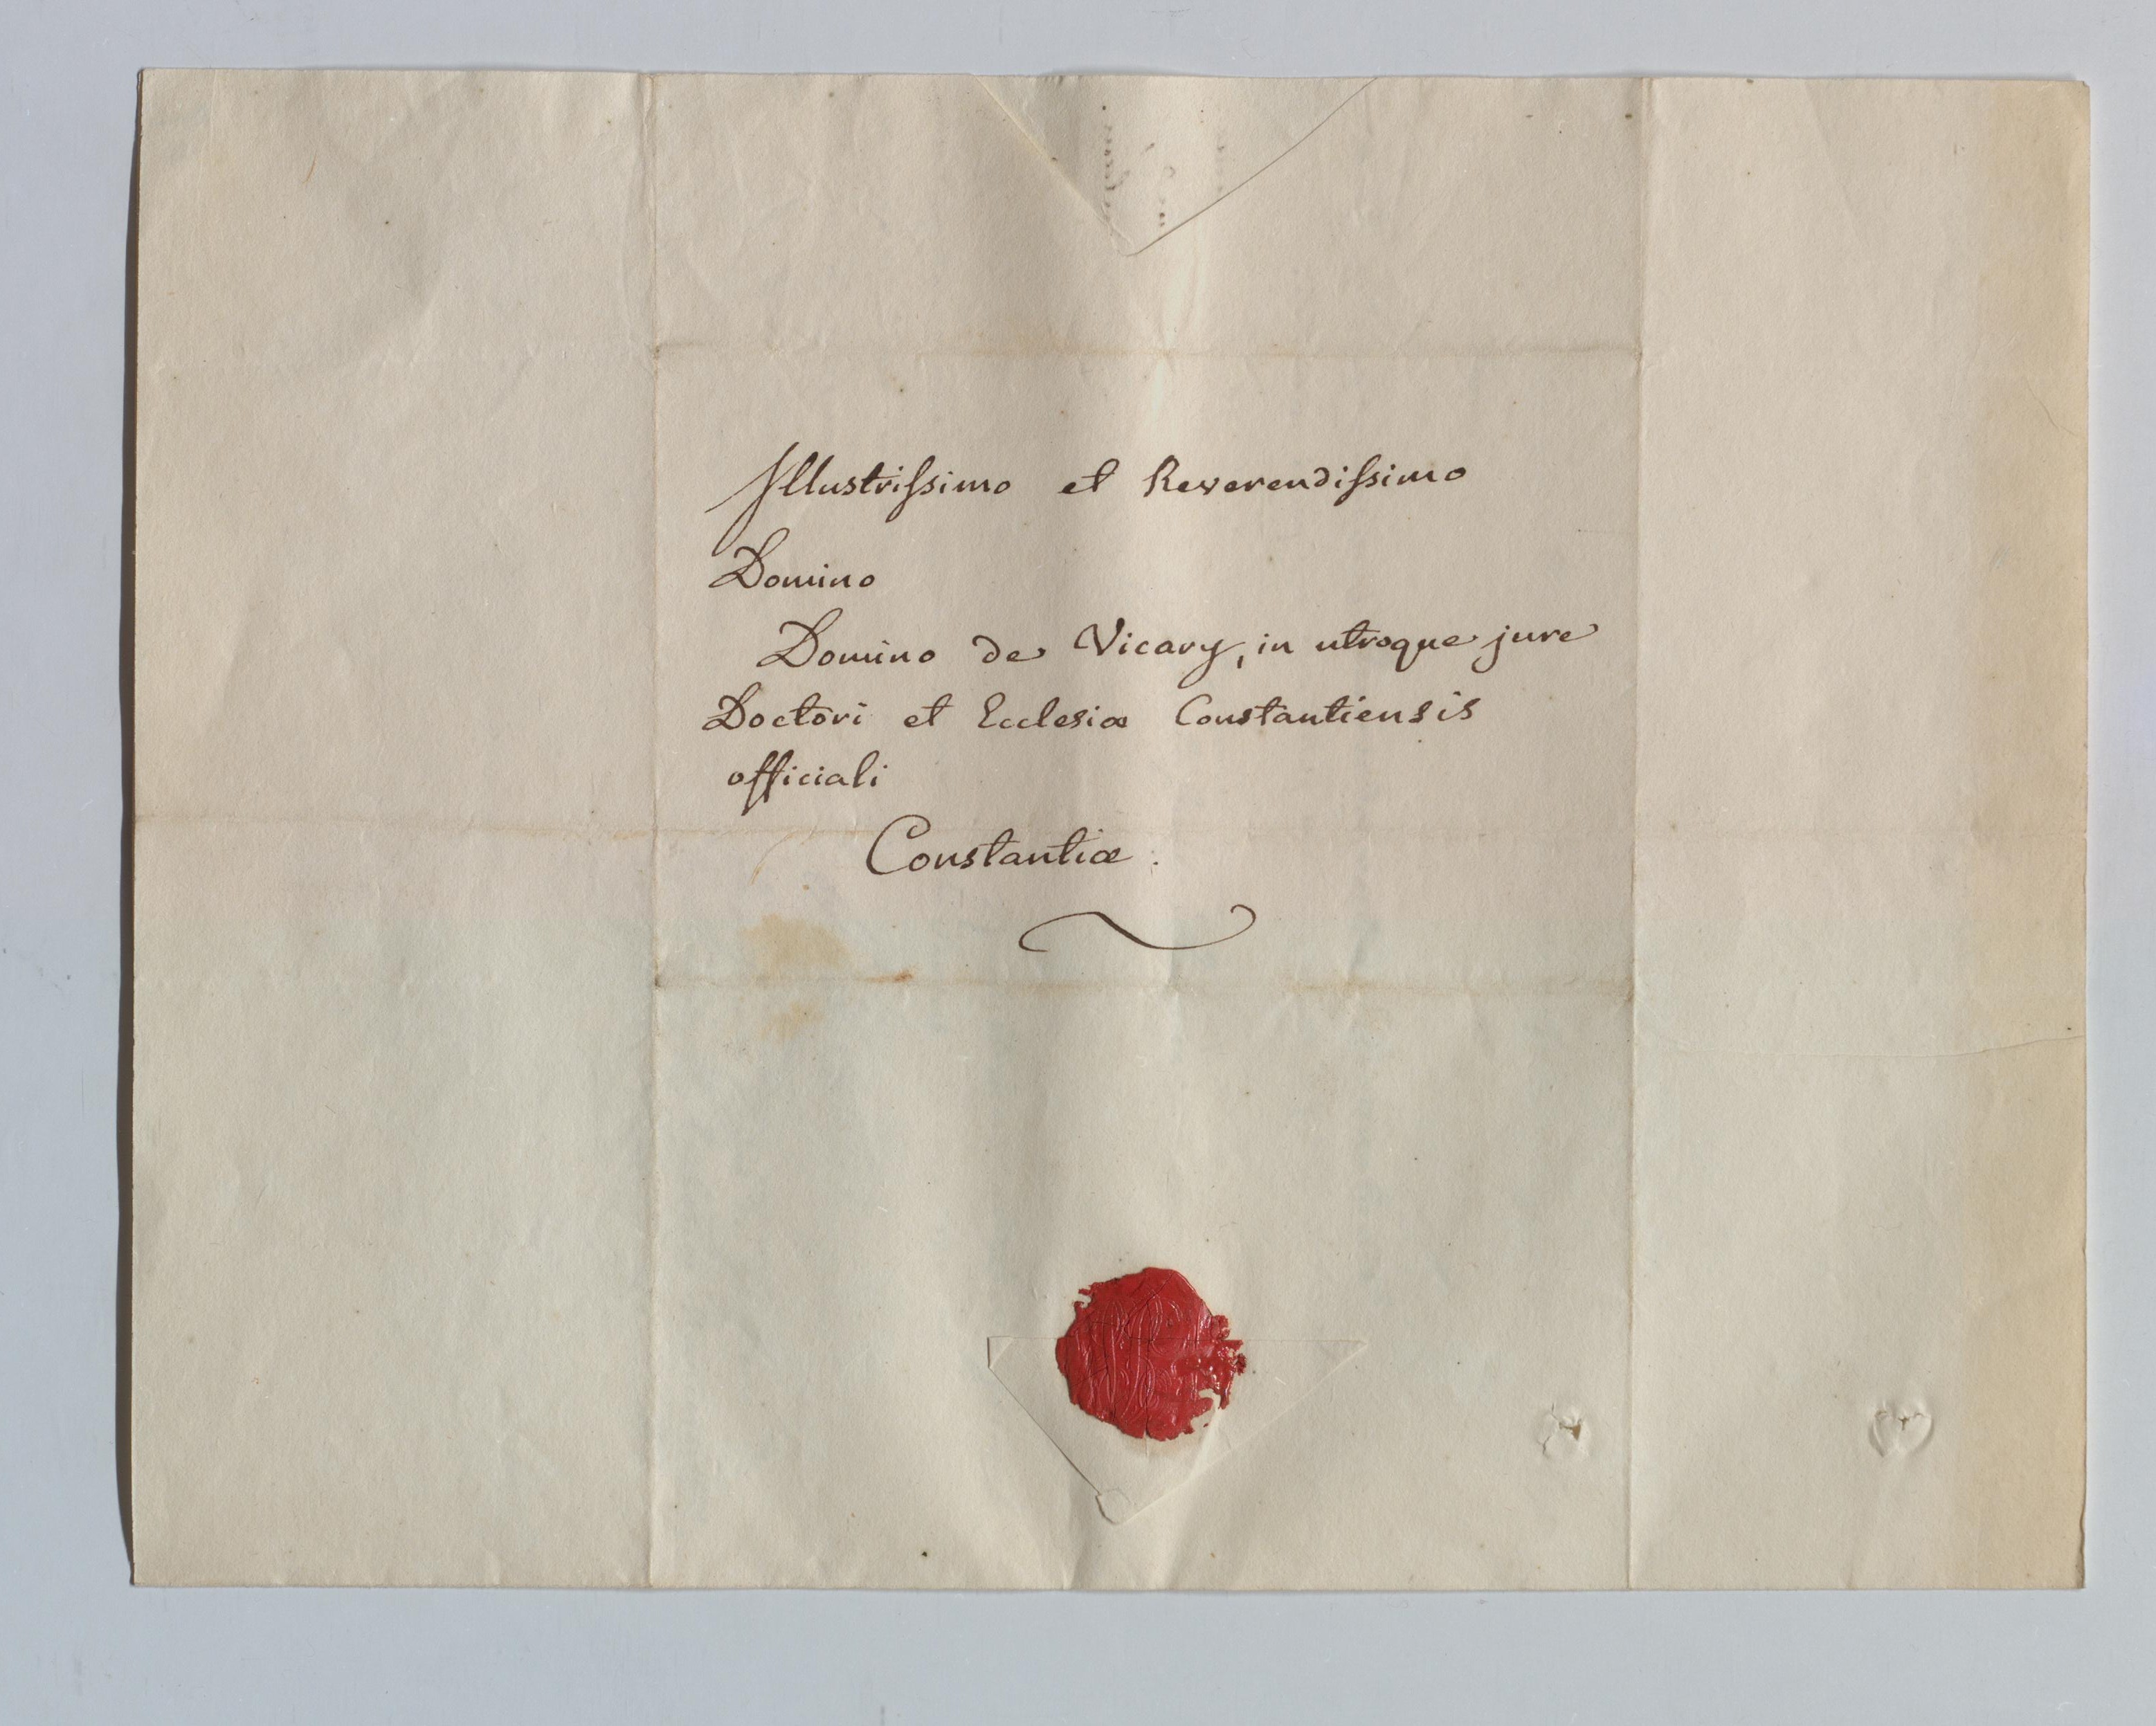 Illustriſsimo et Reverendiſsimo
Domino
Domino de Vicary, in utroque jure
Doctori et Ecclesiæ Constantiensis
officiali
Constantiæ.